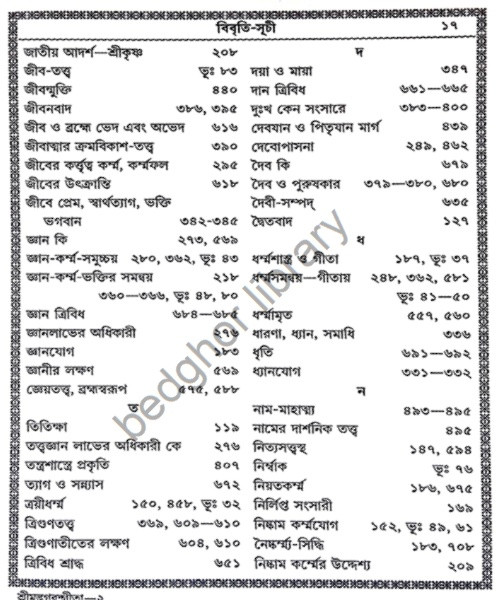 বিবৃতি-সূচী ১৭
জাতীয় আদর্শ—শ্রীকৃষ্ণ ২০৮
জীব-তত্ত্ব ভূঃ ৮৩
জীবন্মুক্তি ৪৪০
জীবনবাদ ৩৮৬, ৩৯৫
জীব ও ব্রহ্মে ভেদ এবং অভেদ ৬১৬
জীবাত্মার ক্রমবিকাশ-তত্ত্ব ৩৯০
জীবের কর্ত্তৃত্ব কর্ম্ম, কর্ম্মফল ২৯৫
জীবের উৎক্রান্তি ৬১৮
জীবে প্রেম, স্বার্থত্যাগ, ভক্তি
ভগবান ৩৪২-৩৪৫
জ্ঞান কি ২৭৩, ৫৬৯
জ্ঞান-কর্ম্ম-সমুচ্চয় ২৮০, ৩৬২, ভূঃ ৪৩
জ্ঞান-কর্ম্ম-ভক্তির সমন্বয় ২১৮
৩৬০—৩৬৬, ভূঃ ৪৮, ৮০
জ্ঞান ত্রিবিধ ৬৮৪—৬৮৫
জ্ঞানলাভের অধিকারী ২৭৬
জ্ঞানযোগ ১৮৩
জ্ঞানীর লক্ষণ ৫৬৯
জ্ঞেয়তত্ত্ব, ব্রহ্মস্বরূপ ৫৭৫, ৫৮৮
ত
তিতিক্ষা ১১৯
তত্ত্বজ্ঞান লাভের অধিকারী কে ২৭৬
তন্ত্রশাস্ত্রে প্রকৃতি ৪০৭
ত্যাগ ও সন্ন্যাস ৬৭২
ত্রয়ীধর্ম্ম ১৫০, ৪৫৮, ভূঃ ৩২
ত্রিগুণতত্ত্ব ৩৬৯, ৬০৯—৬১০
ত্রিগুণাতীতের লক্ষণ ৬০৪, ৬১০
ত্রিবিধ শ্রাদ্ধ ৬৫১
দ
দয়া ও মায়া ৩৪৭
দান ত্রিবিধ ৬৬১—৬৬৫
দুঃখ কেন সংসারে ৩৮৩—৪০০
দেবযান ও পিতৃযান মার্গ ৪৩৯
দেবোপাসনা ২৪৯, ৪৬২
দৈব কি ৬৭৯
দৈব ও পুরুষকার ৩৭৯—৩৮০, ৬৮০
দৈবী-সম্পদ্ ৬৩৫
দ্বৈতবাদ ১২৭
ধ
ধর্ম্মশাস্ত্র ও গীতা ১৮৭, ভূঃ ৩৭
ধর্ম্মসমন্বয়—গীতায় ২৪৮, ৩৬২, ৫৮১
ভূঃ ৪১—৫০
ধর্ম্মামৃত ৫৫৭, ৫৬০
ধারণা, ধ্যান, সমাধি ৩৩৬
ধৃতি ৬৯১—৬৯২
ধ্যানযোগ ৩৩১—৩৩২
ন
নাম-মাহাত্ম্য ৪৯৩—৪৯৫
নামের দার্শনিক তত্ত্ব ৪৯৫
নিত্যসত্ত্বস্থ ১৪৭, ৫৯৪
নির্ম্বাক ভূঃ ৭৬
নিয়তকর্ম্ম ১৮৬, ৬৭৫
নির্লিপ্ত সংসারী ১৬৯
নিষ্কাম কর্ম্মযোগ ১৫২, ভূঃ ৪৯, ৬১
নৈষ্কর্ম্ম্য-সিদ্ধি ১৮৩, ৭০৮
নিষ্কাম কর্ম্মের উদ্দেশ্য ২০৯
শ্রীমদ্ভগবদ্গীতা—২
bedghor library